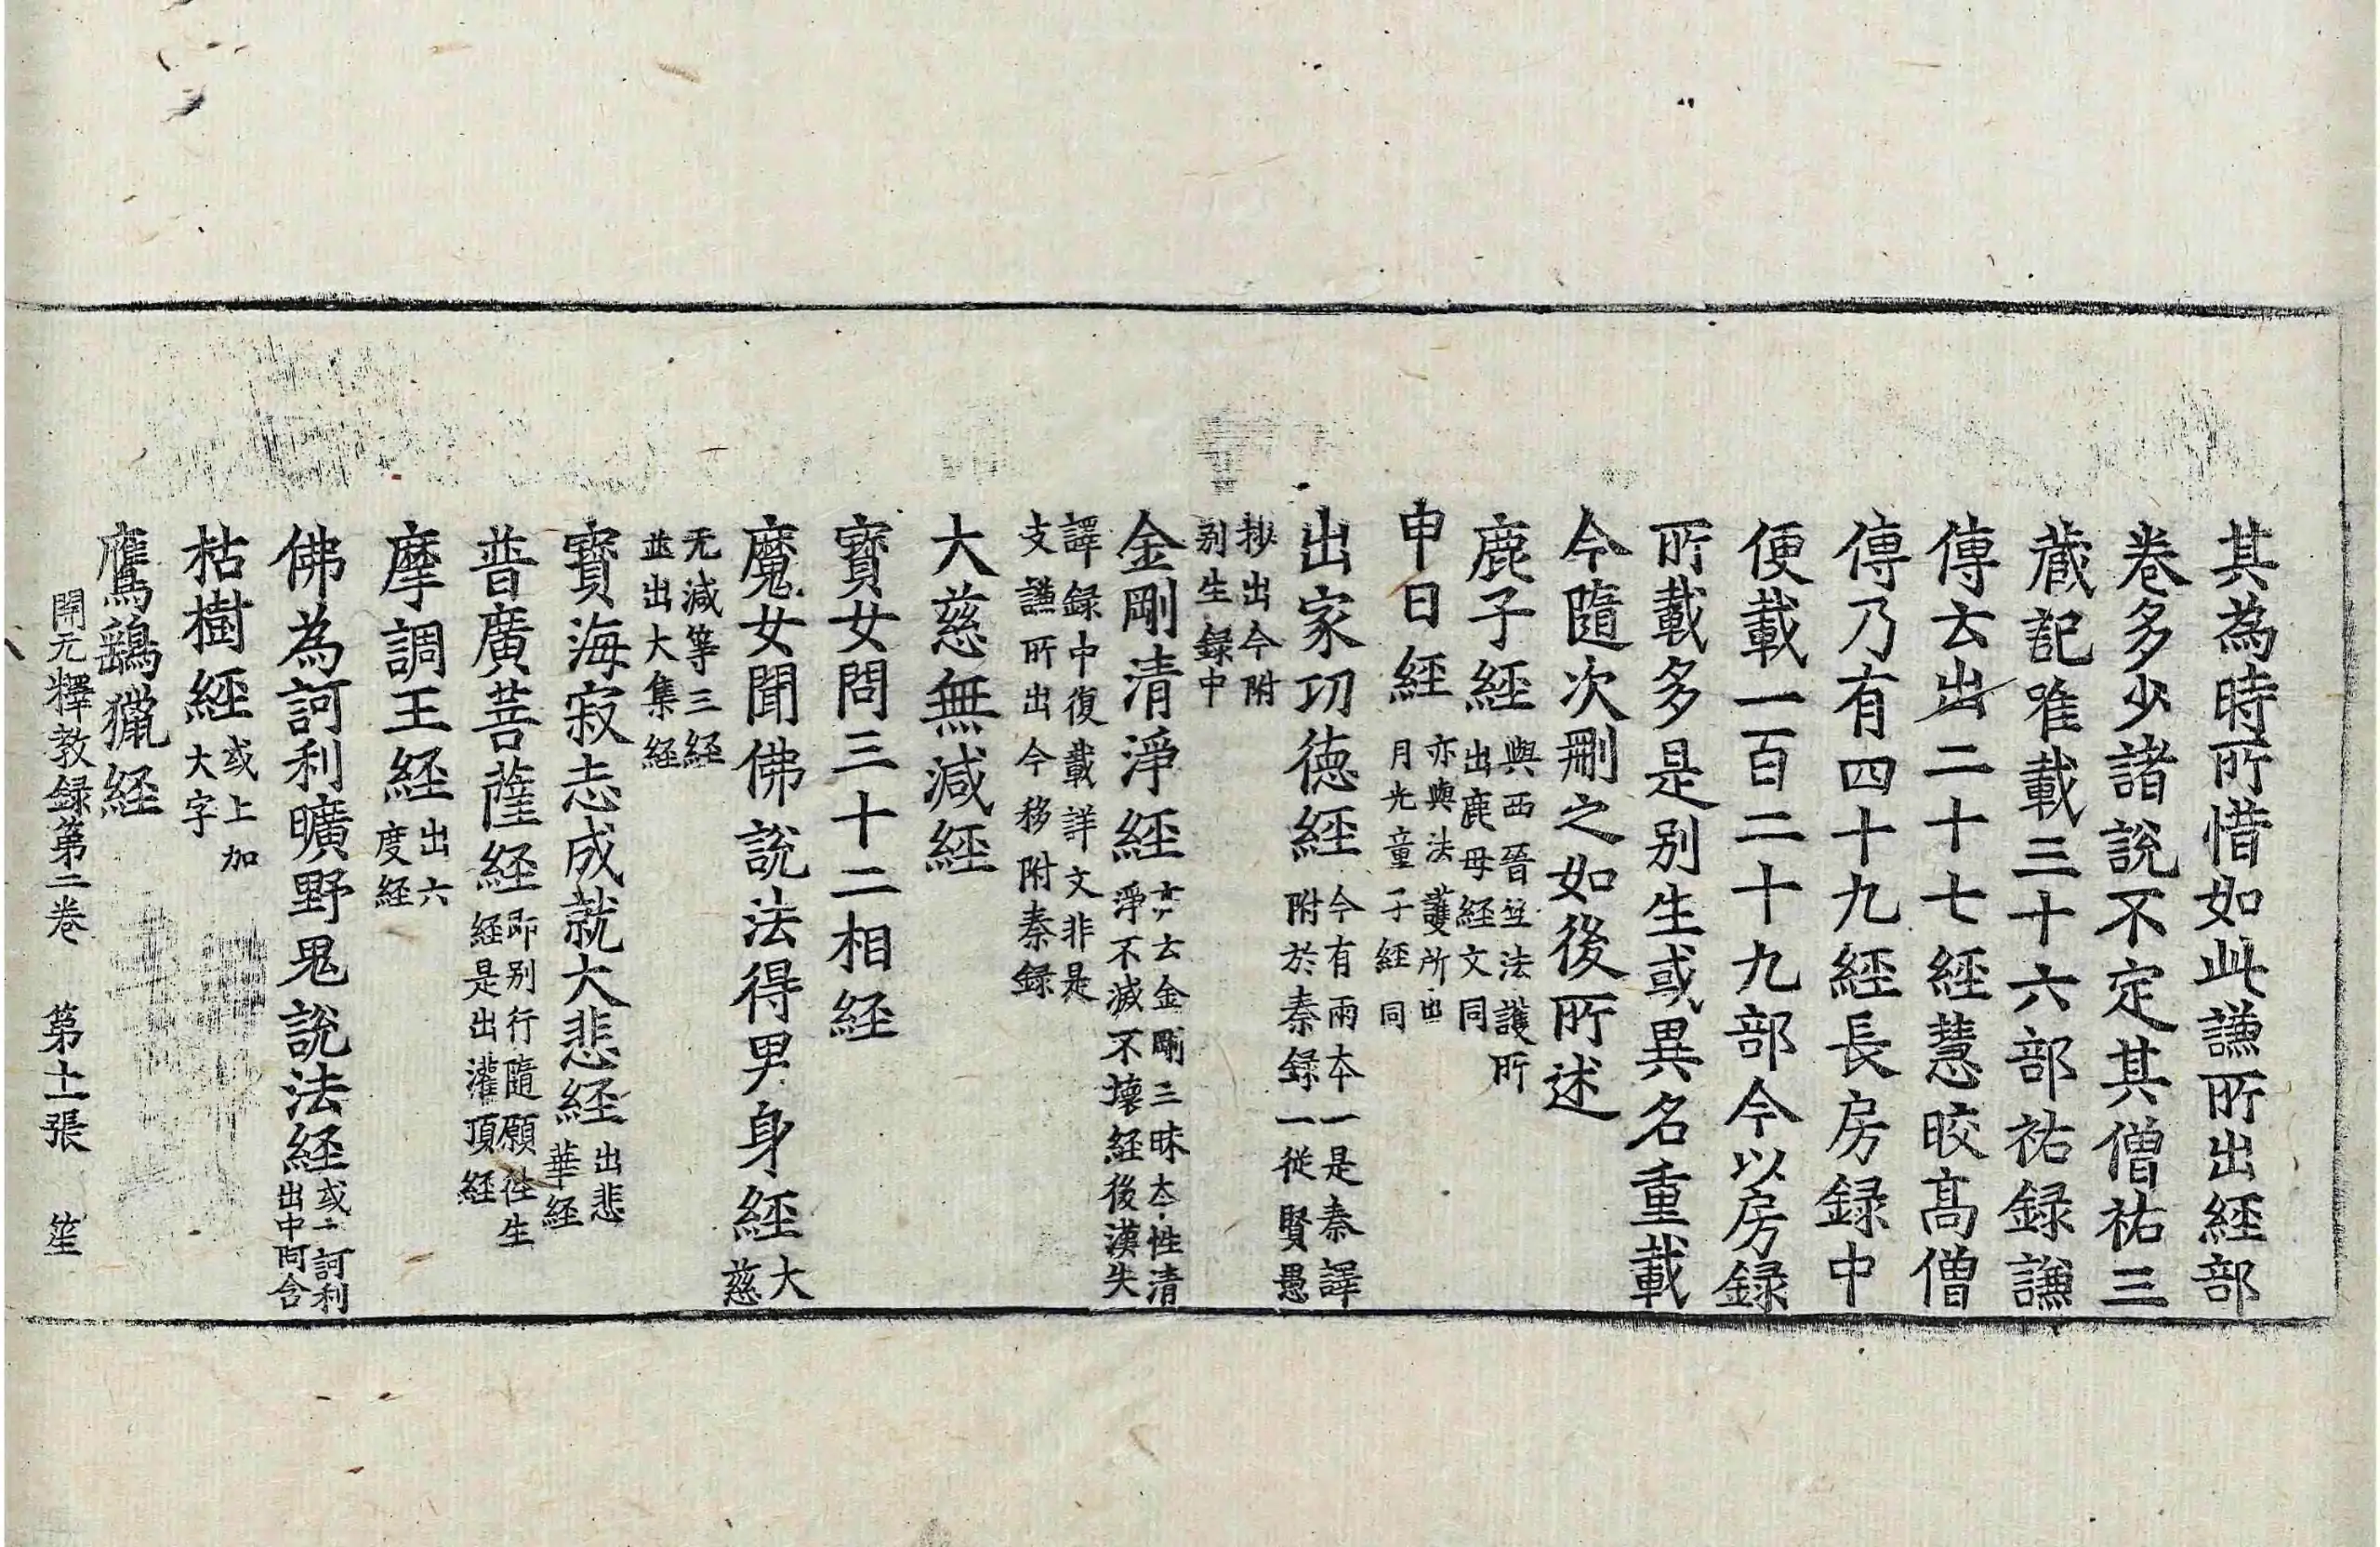 其為時所惜如此謙所出経部
卷多少諸說不定其僧祐三
蔵記唯載三十六部祐録謙
傳云出二十七経慧皎髙僧
傳乃有四十九經長房録中
便載一百二十九部今以房録
所載多是别生或異名重載
今隨次刪之如後所述
鹿子経與西晉並法護所
出鹿母経文同
申日経亦與法護所出
月光童子経同
出家功徳経今有兩本一是秦譯
附於秦録一從賢愚
抄出今附
别生録中
金剛清淨經云金剛三昧本性清
淨不滅不壊経後漢失
譯録中復載詳文非是
支謙所出今移附秦録
大慈無減経
寳女問三十二相経
魔女聞佛說法得男身經大
慈
无減等三経
並出大集経
寳海寂志成就大悲経出悲
華経
普廣菩薩経即别行隨願往生
経是出灌頂経
摩調王経出六
度経
佛為訶利曠野鬼説法経或二訶利
出中阿含
枯樹經或上加
大字
鷹鷂獵経
開元釋教録第二卷 第十一張 笙